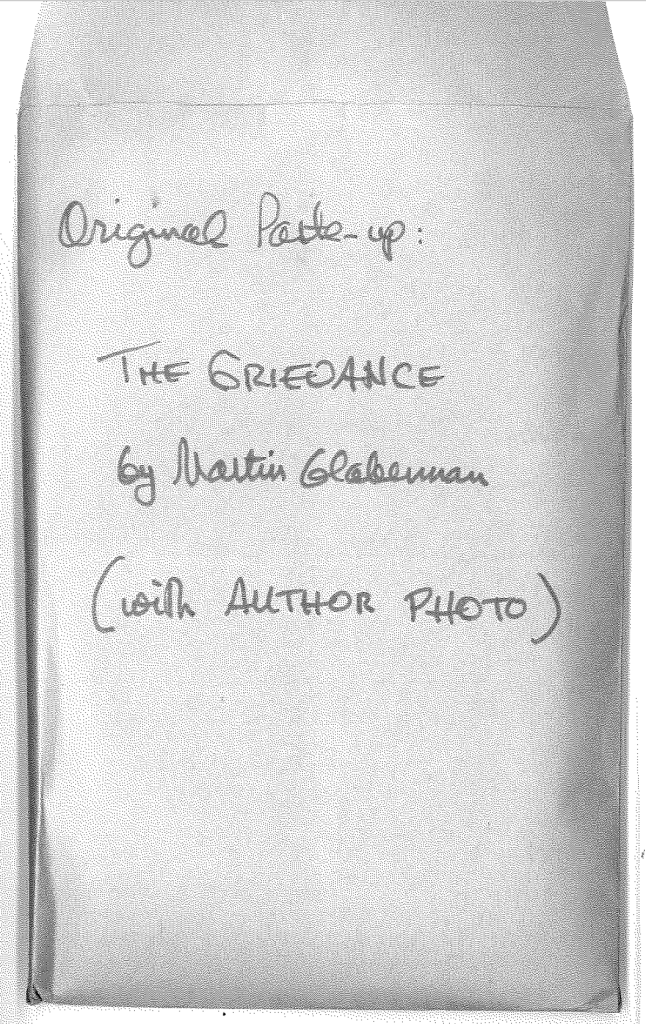 Original Paste-up:
THE GRIEVANCE
by Martin Glaberman
(with AUTHOR PHOTO)